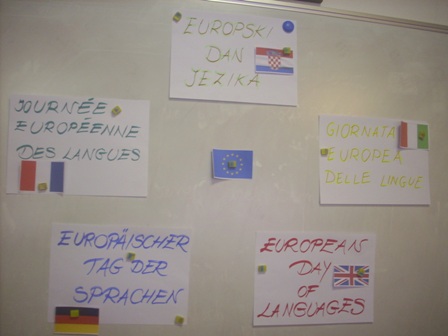 EUROPSKI
DAN
JEZIKA
JOURNÉE
EUROPÉENNE
DES LANGUES
GIORNATA
EUROPEA
DELLE LINGUE
EUROPÄISCHER
TAG DER
SPRACHEN
EUROPEAN
DAY
OF
LANGUAGES